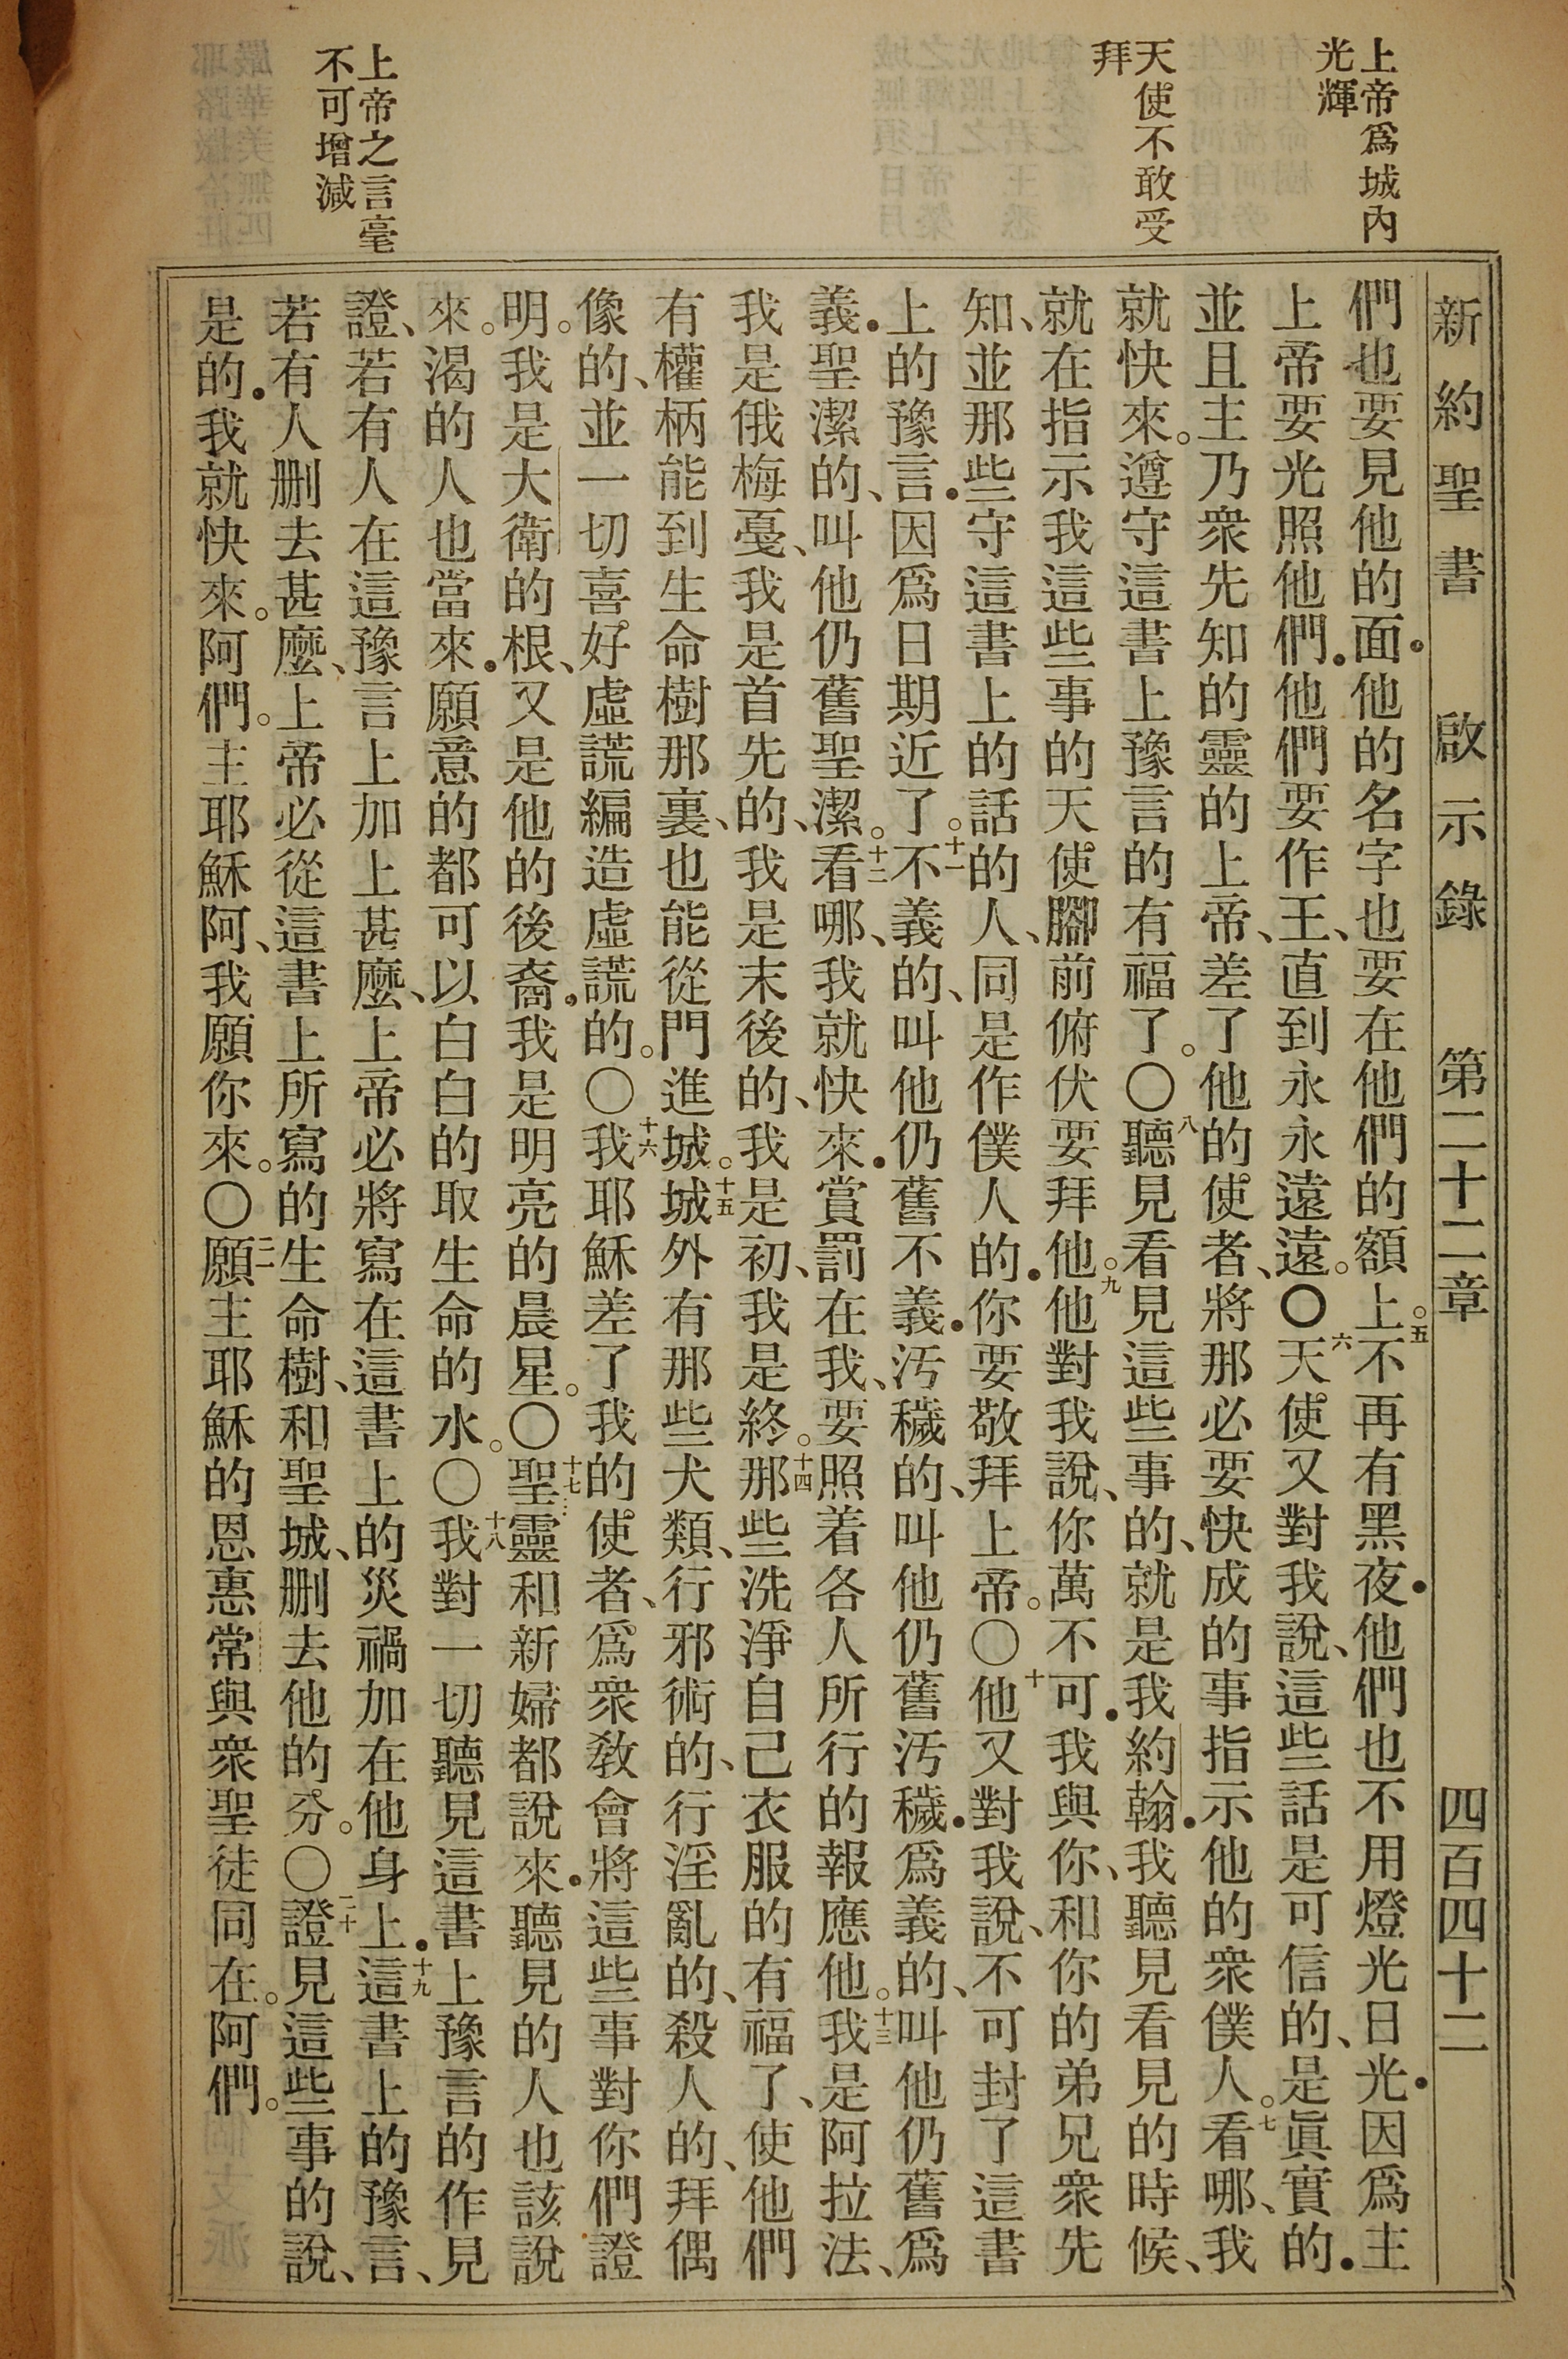 新約聖書　啟示錄　第二十二章　四百四十二
上帝爲城內
光輝
天使不敢受
拜
上帝之言毫
不可增減
們也要見他的面．他的名字也要在他們的額上。五不再有黑夜．他們也不用燈光日光．因爲主
上帝要光照他們．他們要作王、直到永永遠遠。〇六天使又對我說、這些話是可信的、是眞實的．
並且主乃衆先知的靈的上帝、差了他的使者、將那必要快成的事指示他的衆僕人。七看哪、我
就快來。遵守這書上豫言的有福了。〇八聽見看見這些事的、就是我約翰．我聽見看見的時候、
就在指示我這些事的天使腳前俯伏要拜他。九他對我說、你萬不可．我與你、和你的弟兄衆先
知、並那些守這書上的話的人、同是作僕人的．你要敬拜上帝。〇十他又對我說、不可封了這書
上的豫言．因爲日期近了。十一不義的、叫他仍舊不義．汚穢的、叫他仍舊汚穢．爲義的、叫他仍舊爲
義．聖潔的、叫他仍舊聖潔。十二看哪、我就快來．賞罰在我、要照着各人所行的報應他。十三我是阿拉法、
我是俄梅戛、我是首先的、我是末後的、我是初、我是終。十四那些洗淨自己衣服的有福了、使他們
有權柄能到生命樹那裏、也能從門進城。十五城外有那些犬類、行邪術的、行淫亂的、殺人的、拜偶
像的、並一切喜好虛謊編造虛謊的。〇十六我耶穌差了我的使者、爲衆敎會將這些事對你們證
明。我是大衛的根、又是他的後裔．我是明亮的晨星。〇十七聖靈和新婦都說來．聽見的人也該說
來。渴的人也當來．願意的都可以白白的取生命的水。〇十八我對一切聽見這書上豫言的作見
證、若有人在這豫言上加上甚麼、上帝必將寫在這書上的災禍加在他身上．十九這書上的豫言、
若有人删去甚麼、上帝必從這書上所寫的生命樹、和聖城、删去他的分。〇二十證見這些事的說、
是的．我就快來。阿們。主耶穌阿、我願你來。〇二一願主耶穌的恩惠常與衆聖徒同在。阿們。